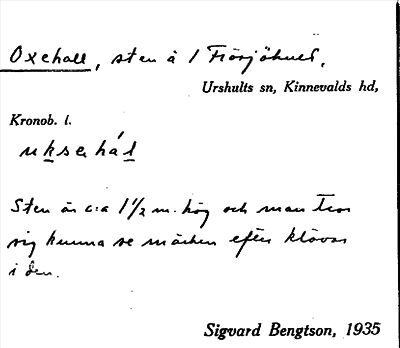 Oxehall, sten å 1 Försjöhult,
Urshults sn, Kinnevalds hd,
Kronob. l.
uksehál
Sten är c:a 1 1/2 m. hög och man tror
sig kunna se märken efter klövar
i den.
Sigvard Bengtson, 1935